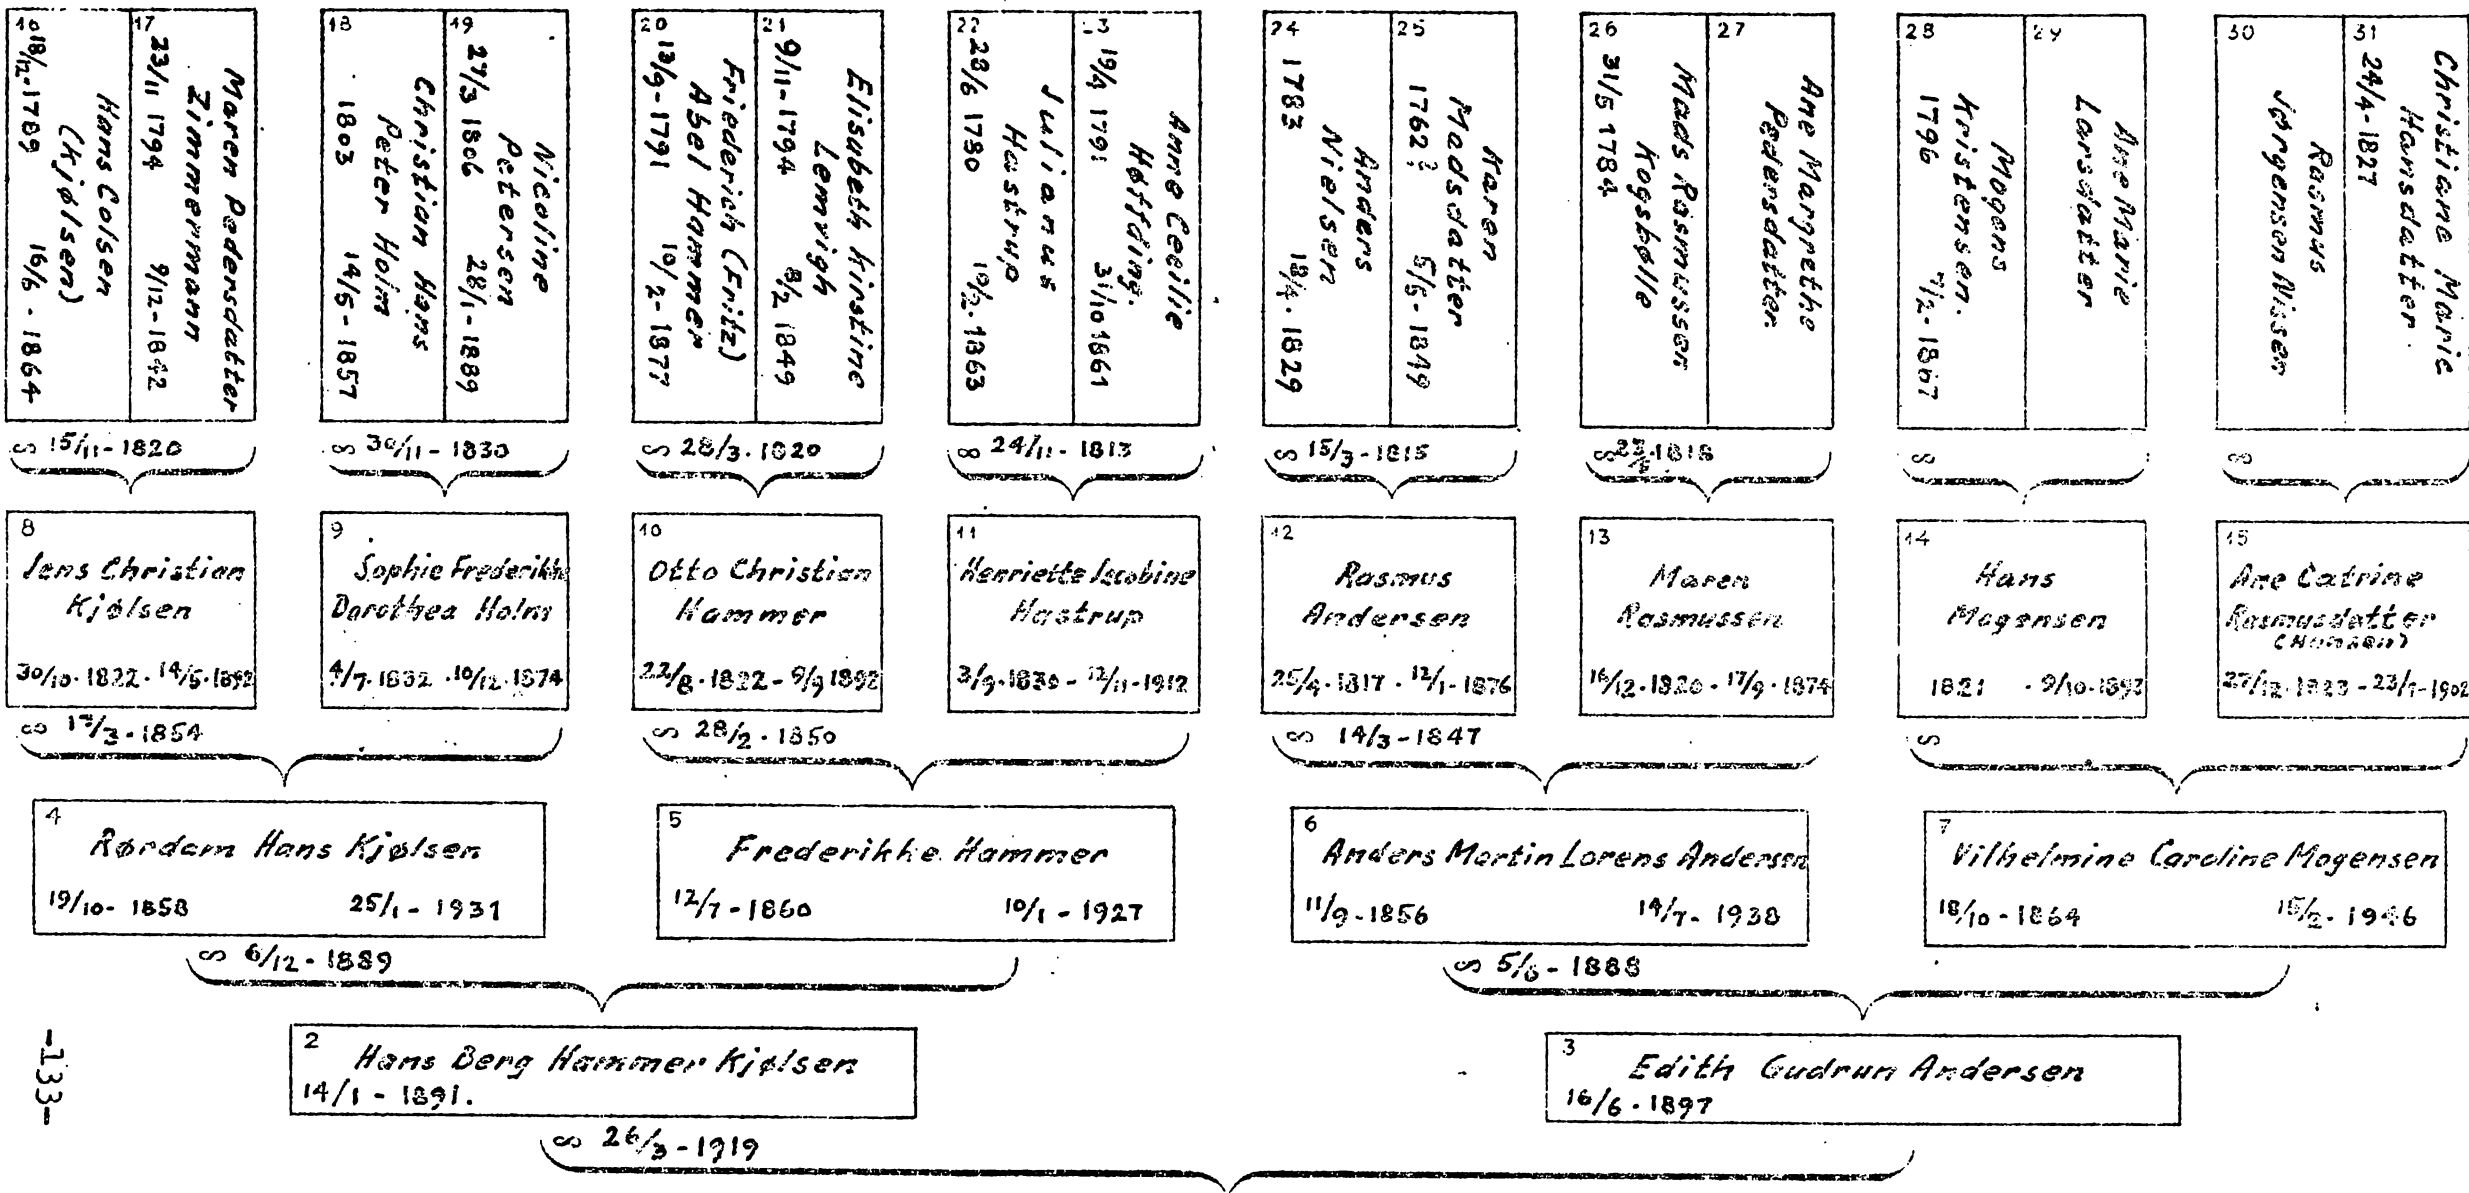 16
18/12-1789
Hans Colsen
(Kjølsen)
16/6 - 1864
17
23/11 1794
Maren Pedersdatter
Zimmermann
9/12-1842
∞ 15/11-1820
18
1803
Christian Hans
Peter Holm
14/5-1857
19
27/3 1806
Nicoline
Petersen
28/1-1889
∞ 30/11-1830
20
13/9-1791
Friederich (Fritz)
Abel Hammer
10/2-1877
21
9/11-1794
Elisabeth Kirstine
Lemvigh
8/2 1849
∞ 28/3-1820
22
28/6 1780
Julianus
Hastrup
19/2-1863
23
19/4 1791
Anne Cecilie
Høffding.
31/10 1861
∞ 24/11-1813
24
1783
Anders
Nielsen
18/4-1829
25
1762?
Karen
Madsdatter
5/5-1849
∞ 15/3-1815
26
31/5 1784
Mads Rasmussen
Kogsbølle
27
Ane Margrethe
Pedersdatter.
∞ 1818
28
1796
Mogens
Kristensen.
7/2-1867
29
Ane Marie
Larsdatter
∞
30
Rasmus
Jørgensen Nissen
31
24/4-1827
Christiane Marie
Hansdatter.
∞
8
Jens Christian
Kjølsen
30/10-1822-14/5-1892
∞ 17/3-1854
9
Sophie Frederikke
Dorothea Holm
4/7-1832-10/12-1874
10
Otto Christian
Hammer
22/8-1822-9/9 1892
∞ 28/2-1850
11
Henriette Jacobine
Hastrup
3/9-1830-12/11-1912
12
Rasmus
Andersen
25/4-1817-12/1-1876
∞ 14/3-1847
13
Maren
Rasmussen
16/12-1820-17/9-1874
14
Hans
Mogensen
1821 -9/10-1897
∞
15
Ane Catrine
Rasmusdatter
(Hansen)
27/12-1823-23/1-1902
4
Rørdam Hans Kjølsen
19/10-1858 25/1-1931
5
Frederikke Hammer
12/7-1860 10/1-1927
∞ 6/12-1889
6
Anders Martin Lorens Andersen
11/9-1856 14/7-1938
7
Vilhelmine Caroline Mogensen
18/10-1864 15/2-1946
∞ 5/6-1888
2
Hans Berg Hammer Kjølsen
14/1-1891.
3
Edith Gudrun Andersen
16/6-1897
∞ 26/3-1919
-133-